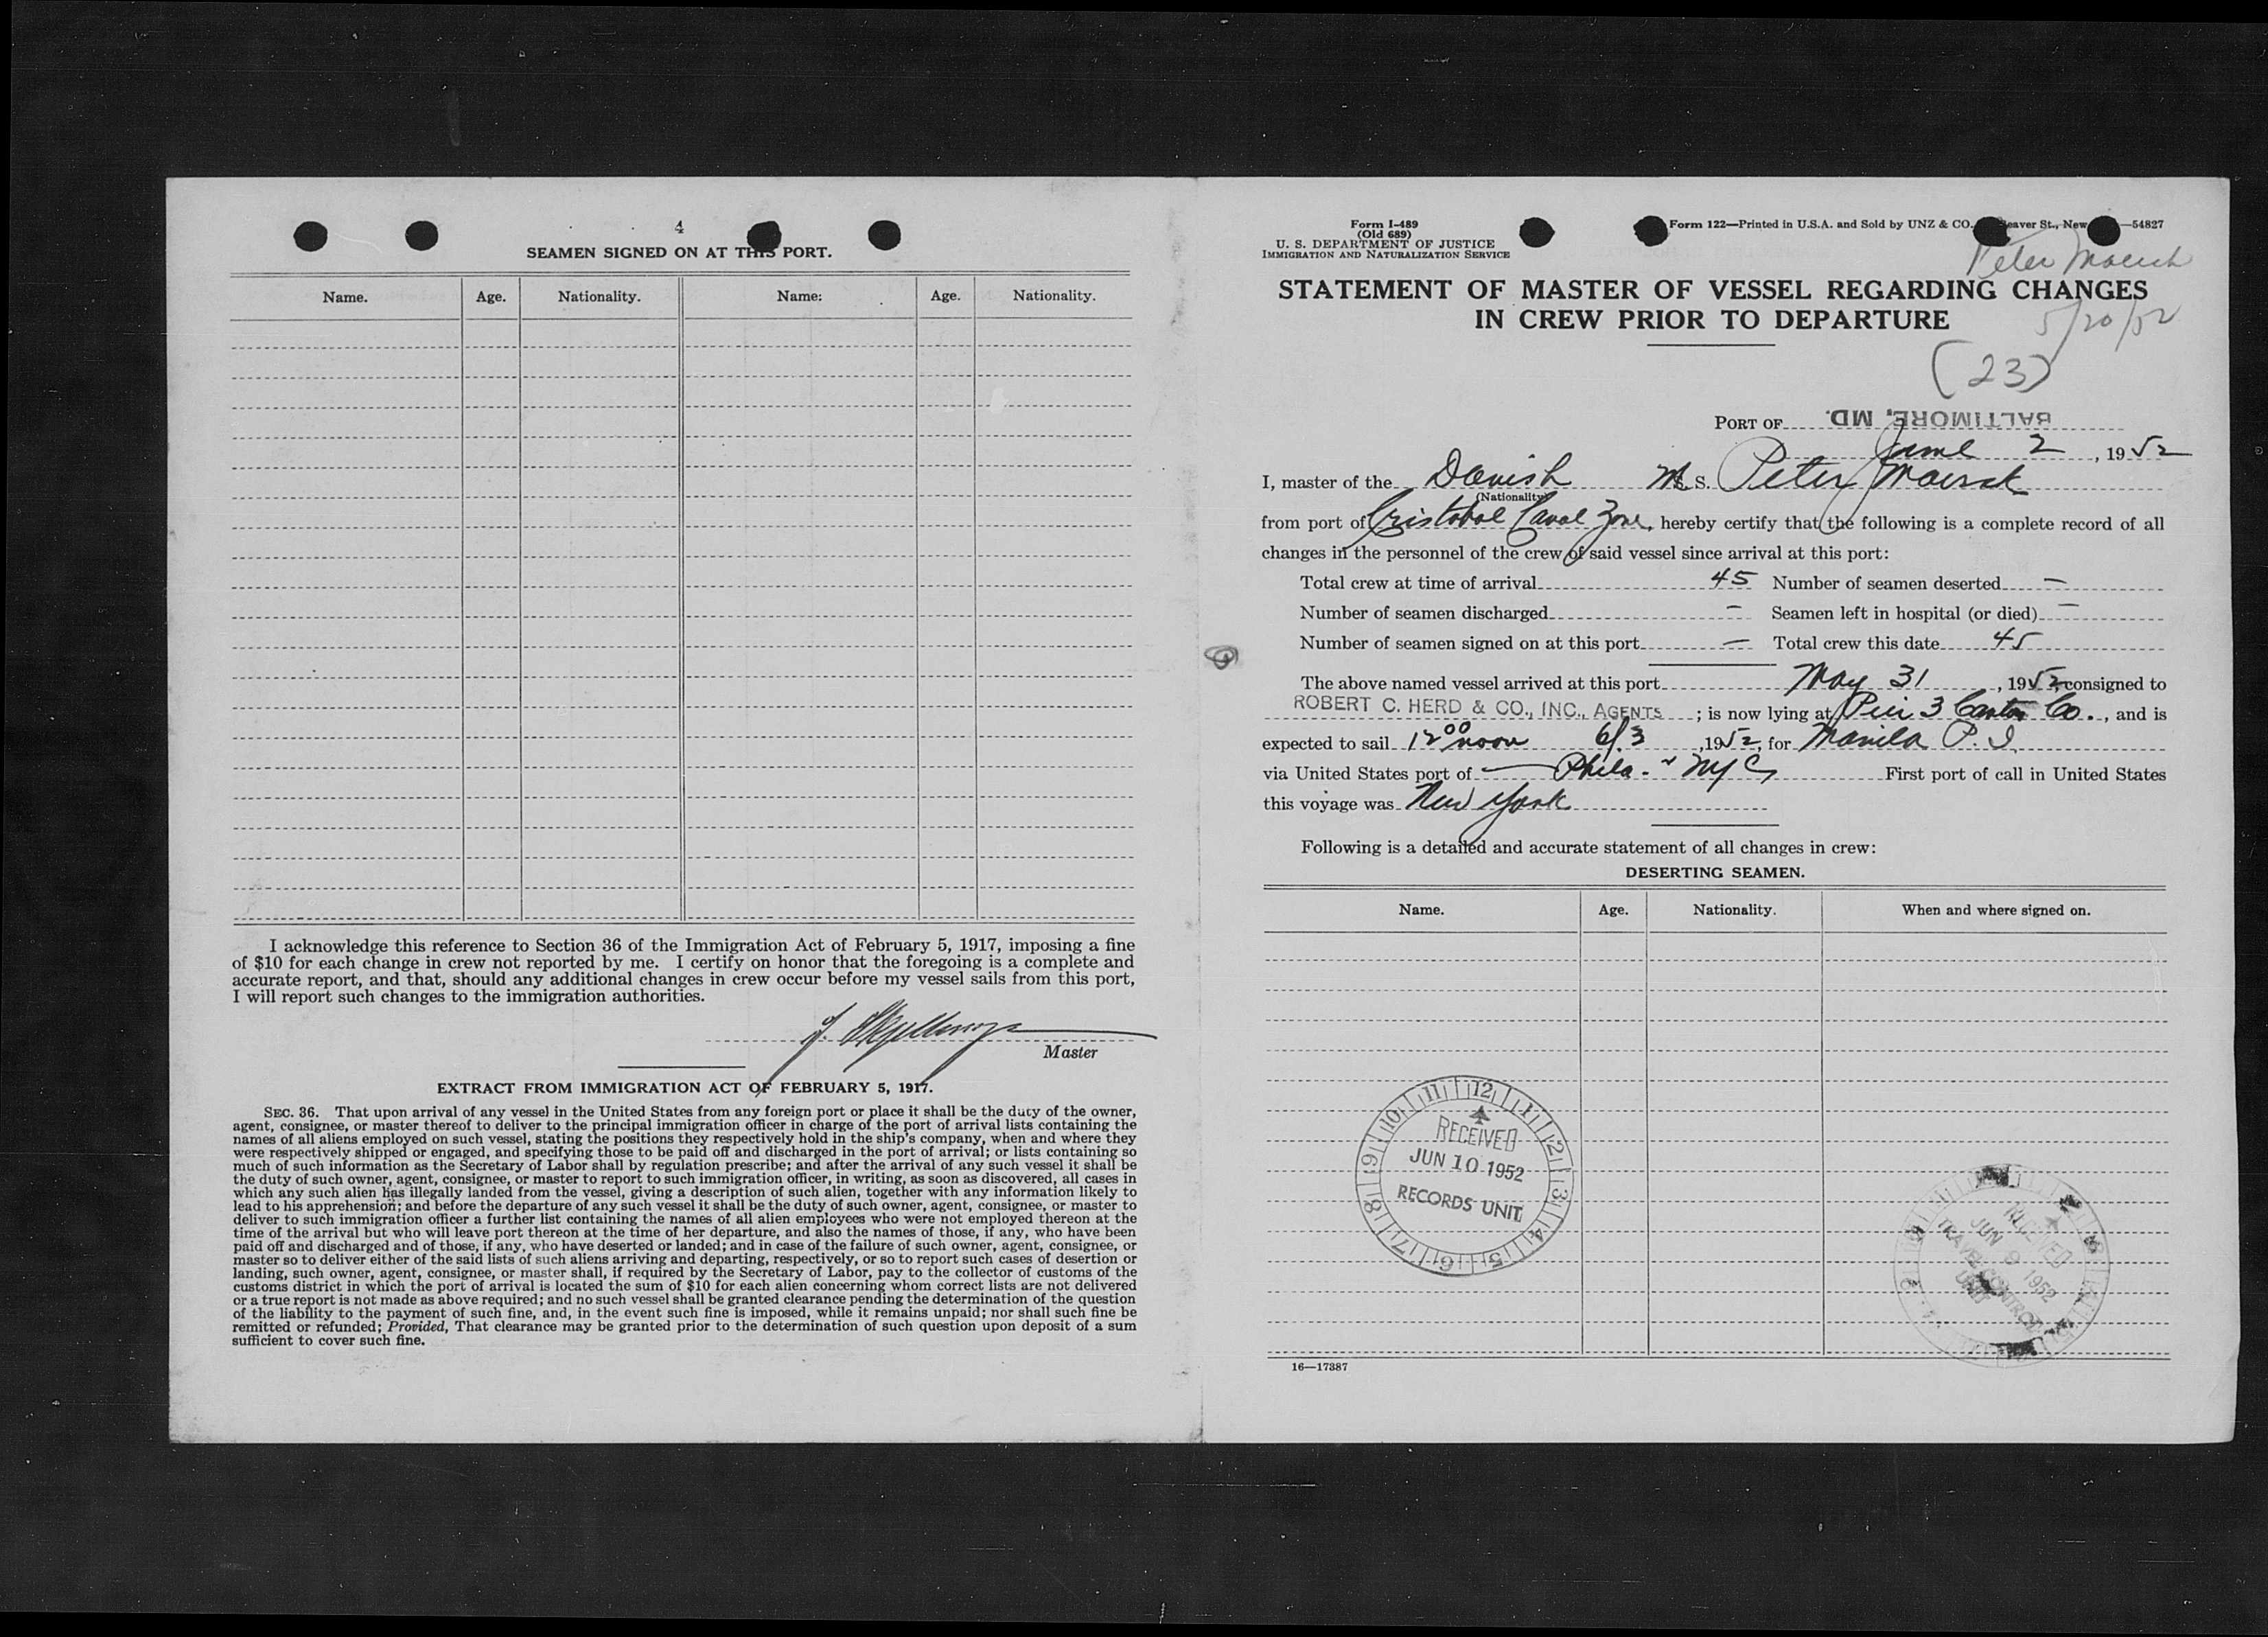 4
SEAMEN SIGNED ON AT THIS PORT.
Name. Age. Nationality. Name: Age. Nationality.
I acknowledge this reference to Section 36 of the Immigration Act of February 5, 1917, imposing a fine
of $10 for each change in crew not reported by me. I certify on honor that the foregoing is a complete and
accurate report, and that, should any additional changes in crew occur before my vessel sails from this port,
I will report such changes to the immigration authorities.
Master
EXTRACT FROM IMMIGRATION ACT OF FEBRUARY 5, 1917.
SEC. 36. That upon arrival of any vessel in the United States from any foreign port or place it shall be the duty of the owner,
agent, consignee, or master thereof to deliver to the principal immigration officer in charge of the port of arrival lists containing the
names of all aliens employed on such vessel, stating the positions they respectively hold in the ship's company, when and where they
were respectively shipped or engaged, and specifying those to be paid off and discharged in the port of arrival; or lists containing so
much of such information as the Secretary of Labor shall by regulation prescribe; and after the arrival of any such vessel it shall be
the duty of such owner, agent, consignee, or master to report to such immigration officer, in writing, as soon as discovered, all cases in
which any such alien has illegally landed from the vessel, giving a description of such alien, together with any information likely to
lead to his apprehension; and before the departure of any such vessel it shall be the duty of such owner, agent, consignee, or master to
deliver to such immigration officer a further list containing the names of all alien employees who were not employed thereon at the
time of the arrival but who will leave port thereon at the time of her departure, and also the names of those, if any, who have been
paid off and discharged and of those, if any, who have deserted or landed; and in case of the failure of such owner, agent, consignee, or
master so to deliver either of the said lists of such aliens arriving and departing, respectively, or so to report such cases of desertion or
landing, such owner, agent, consignee, or master shall, if required by the Secretary of Labor, pay to the collector of customs of the
customs district in which the port of arrival is located the sum of $10 for each alien concerning whom correct lists are not delivered
or a true report is not made as above required; and no such vessel shall be granted clearance pending the determination of the question
of the liability to the payment of such fine, and, in the event such fine is imposed, while it remains unpaid; nor shall such fine be
remitted or refunded; Provided, That clearance may be granted prior to the determination of such question upon deposit of a sum
sufficient to cover such fine.
Form I-489
(Old 689)
U. S. DEPARTMENT OF JUSTICE
IMMIGRATION AND NATURALIZATION SERVICE
Form 122—Printed in U.S.A. and Sold by UNZ & CO. Beaver St., New —54827
Peter Maersk
STATEMENT OF MASTER OF VESSEL REGARDING CHANGES
IN CREW PRIOR TO DEPARTURE
5/20/52
(23)
PORT OF BALTIMORE, MD.
June 2, 1952
I, master of the Danish M S. Peter Maersk
(Nationality)
from port of Cristobal Canal Zone, hereby certify that the following is a complete record of all
changes in the personnel of the crew of said vessel since arrival at this port:
Total crew at time of arrival 45 Number of seamen deserted —
Number of seamen discharged — Seamen left in hospital (or died) —
Number of seamen signed on at this port — Total crew this date 45
The above named vessel arrived at this port May 31, 1952, consigned to
ROBERT C. HERD & CO., INC., AGENTS ; is now lying at Pier 3 Canton Co., and is
expected to sail 12 00 noon 6/3, 1952, for Manila P. I.
via United States port of — Phila. ~ NYC First port of call in United States
this voyage was New York
Following is a detailed and accurate statement of all changes in crew:
DESERTING SEAMEN.
Name. Age. Nationality. When and where signed on.
12 1 2 3 4 5 6 7 8 9 10 11
RECEIVED
JUN 10 1952
RECORDS UNIT
RECEIVED
JUN 9 1952
TRAVEL CONTROL
UNIT
16—17387